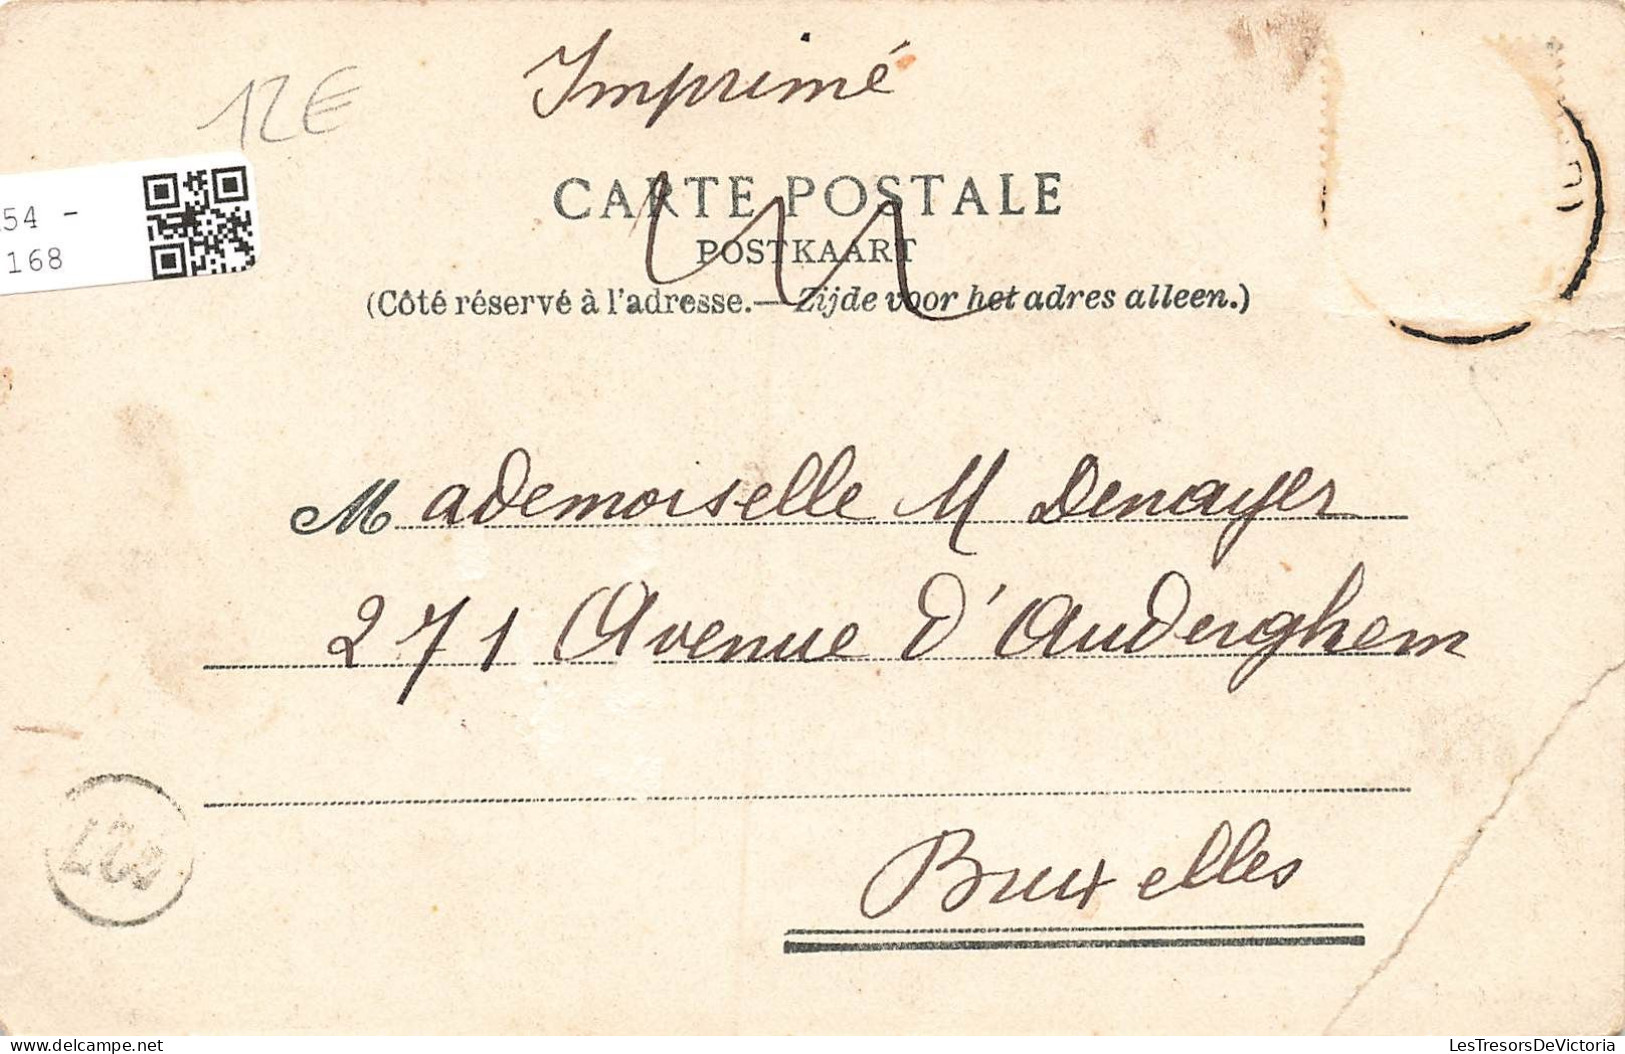 Imprimé
12€
CARTE POSTALE
POSTKAART
(Côté réservé à l'adresse.— Zijde voor het adres alleen.)
54 -
168
Mademoiselle M Denayer
271 Avenue d'Auderghem
Bruxelles
LesTresorsDeVictoria